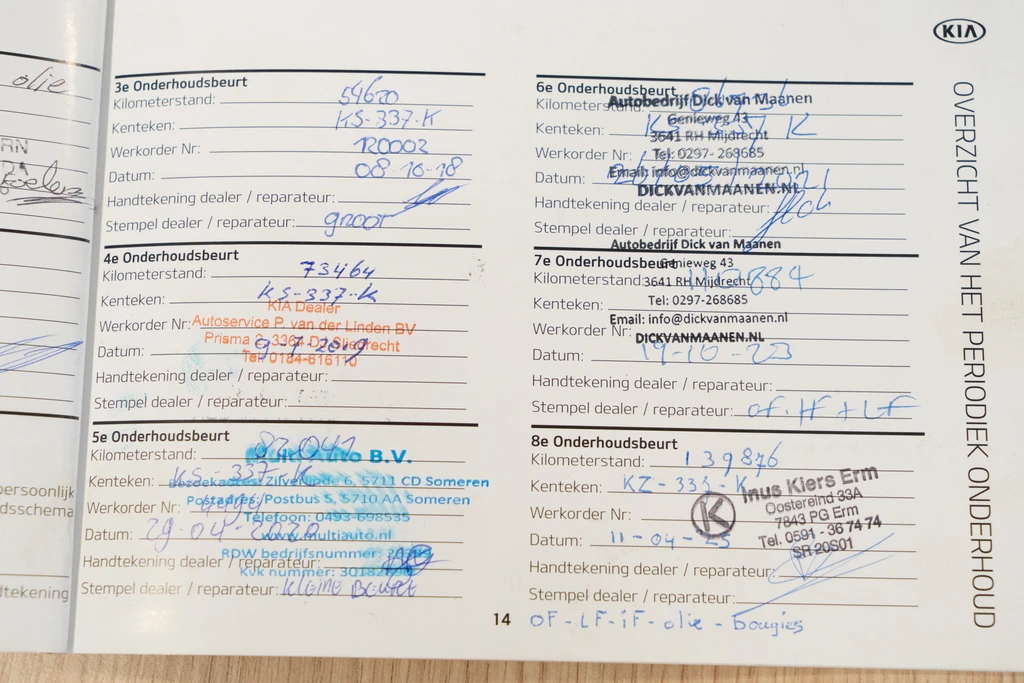 olie
RN
ersoonlijk
dsschema
tekening
3e Onderhoudsbeurt
Kilometerstand: 54620
Kenteken: KS-337-K
Werkorder Nr: 120002
Datum: 08-10-18
Handtekening dealer / reparateur:
Stempel dealer / reparateur: groot
4e Onderhoudsbeurt
Kilometerstand: 73464
Kenteken: KS-337-K
KIA Dealer
Werkorder Nr: Autoservice P. van der Linden BV
Prisma 2, 3364 DJ Sliedrecht
Datum: 9-7-2019
Tel. 0184-616110
Handtekening dealer / reparateur:
Stempel dealer / reparateur:
5e Onderhoudsbeurt
Kilometerstand: 82041
Multi Auto B.V.
Kenteken: KS-337-K
Bezoekadres: Zilverlinde 6, 5711 CD Someren
Postadres: Postbus 5, 5710 AA Someren
Werkorder Nr:
Telefoon: 0493-698535
Datum: 29-04-2020
www.multiauto.nl
RDW bedrijfsnummer:
Handtekening dealer / reparateur:
Kvk nummer:
Stempel dealer / reparateur: kleine Beurt
KIA
OVERZICHT VAN HET PERIODIEK ONDERHOUD
6e Onderhoudsbeurt
Kilometerstand:
Autobedrijf Dick van Maanen
Genieweg 43
Kenteken:
3641 RH Mijdrecht
Werkorder Nr:
Tel: 0297-268685
Email: info@dickvanmaanen.nl
Datum:
DICKVANMAANEN.NL
Handtekening dealer / reparateur:
Stempel dealer / reparateur:
Autobedrijf Dick van Maanen
7e Onderhoudsbeurt
Genieweg 43
Kilometerstand: 110884
3641 RH Mijdrecht
Kenteken:
Tel: 0297-268685
Email: info@dickvanmaanen.nl
Werkorder Nr:
DICKVANMAANEN.NL
Datum: 19-10-23
Handtekening dealer / reparateur:
Stempel dealer / reparateur: OF + IF + LF
8e Onderhoudsbeurt
Kilometerstand: 139876
Kenteken: KZ-333-K
Inus Kiers Erm
Oostereind 33A
7843 PG Erm
Tel. 0591 - 36 74 74
SR 20S01
K
Werkorder Nr:
Datum: 11-04-25
Handtekening dealer / reparateur:
Stempel dealer / reparateur:
14
OF - LF - iF - olie - bougies